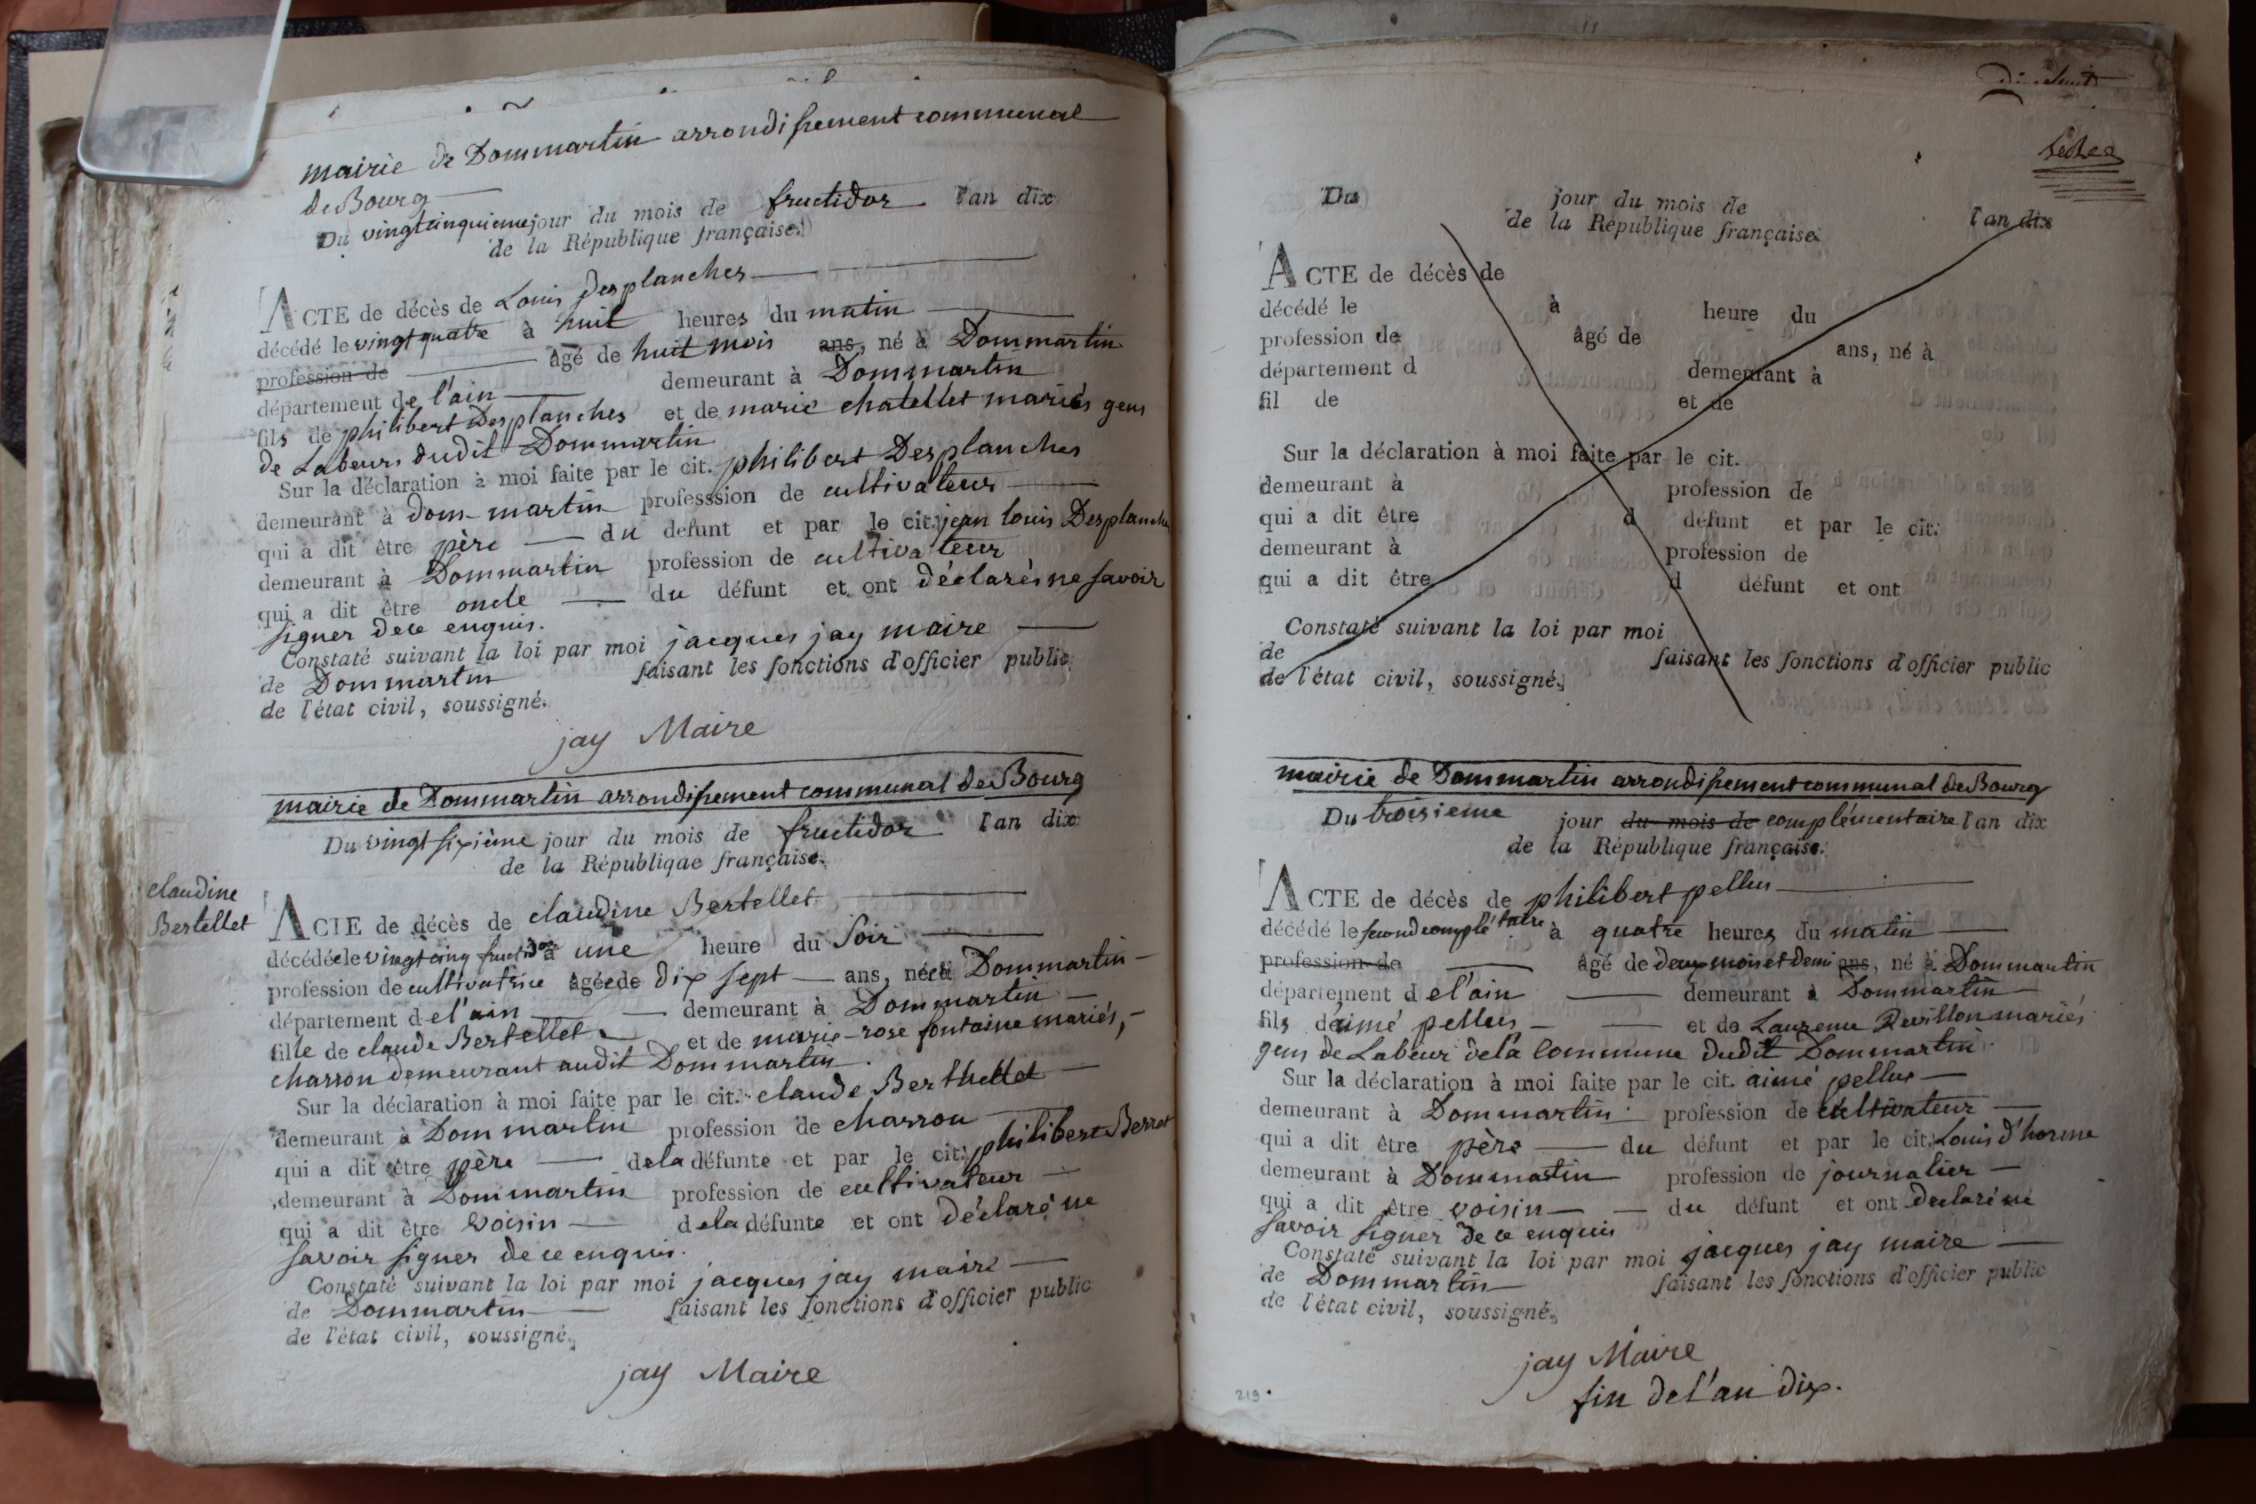 mairie de Dommartin arrondissement communal
de Bourg
Du vingtcinquieme jour du mois de fructidor l'an dix
de la République française.
ACTE de décès de Louis Desplanches
décédé le vingt quatre à huit heures du matin
profession de âgé de huit mois ans, né à Dommartin
département de l'ain demeurant à Dommartin
fils de philibert Desplanches et de marie chatellet mariés gens
de Labeurs dudit Dommartin
Sur la déclaration à moi faite par le cit. philibert Desplanches
demeurant à dom-martin professsion de cultivateur
qui a dit être père du défunt et par le cit. jean louis Desplanche
demeurant à Dommartin profession de cultivateur
qui a dit être oncle du défunt et ont déclarés ne savoir
signer dece enquis.
Constaté suivant la loi par moi jacques jay maire
de Dommartin faisant les fonctions d'officier public
de l'état civil, soussigné.
jay Maire
mairie de Dommartin arrondissement communal de Bourg
Du vingt sixième jour du mois de fructidor l'an dix
de la République française.
claudine
Bertellet
ACTE de décès de claudine Bertellet
décédée le vingt cinq fructidor à une heure du soir
profession de cultivatrice âgée de dix sept ans, née à Dommartin
département de l'ain demeurant à Dommartin
fille de claude Bertellet et de marie-rose fontaine mariés,
charron demeurant audit Dommartin.
Sur la déclaration à moi faite par le cit. claude Berthellet
demeurant à Dommartin profession de charron
qui a dit être père dela défunte et par le cit. philibert Berret
demeurant à Dommartin profession de cultivateur
qui a dit être voisin dela défunte et ont déclaré ne
savoir signer de ce enquis.
Constaté suivant la loi par moi jacques jay maire
de Dommartin faisant les fonctions d'officier public
de l'état civil, soussigné.
jay Maire
Du jour du mois de l'an dix
de la République française.
ACTE de décès de
décédé le à heure du
profession de âgé de ans, né à
département d demeurant à
fil de et de
Sur la déclaration à moi faite par le cit.
demeurant à profession de
qui a dit être d défunt et par le cit.
demeurant à profession de
qui a dit être d défunt et ont
Constaté suivant la loi par moi
de faisant les fonctions d'officier public
de l'état civil, soussigné.
mairie de Dommartin arrondissement communal de Bourg
Du troisieme jour du mois de complémentaire l'an dix
de la République française.
ACTE de décès de philibert pellus
décédé le second complé'taire à quatre heures du matin
profession de âgé de deux mois et demi ans, né à Dommartin
département de l'ain demeurant à Dommartin
fils de aimé pellus et de Laurence Revillon mariés
gens de Labeur dela Commune dudit Dommartin.
Sur la déclaration à moi faite par le cit. aimé pellus
demeurant à Dommartin profession de cultivateur
qui a dit être père du défunt et par le cit. Louis d'horme
demeurant à Dommartin profession de journalier
qui a dit être voisin du défunt et ont declaré ne
savoir signer de ce enquis
Constaté suivant la loi par moi jacques jay maire
de Dommartin faisant les fonctions d'officier public
de l'état civil, soussigné.
jay Maire
fin de l'an dix.
219